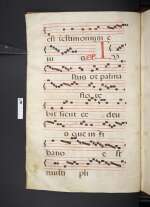 est testimonium e
iu
stus ut palma
flo re
bit sicut ce
que in li
bano e st
multi pli